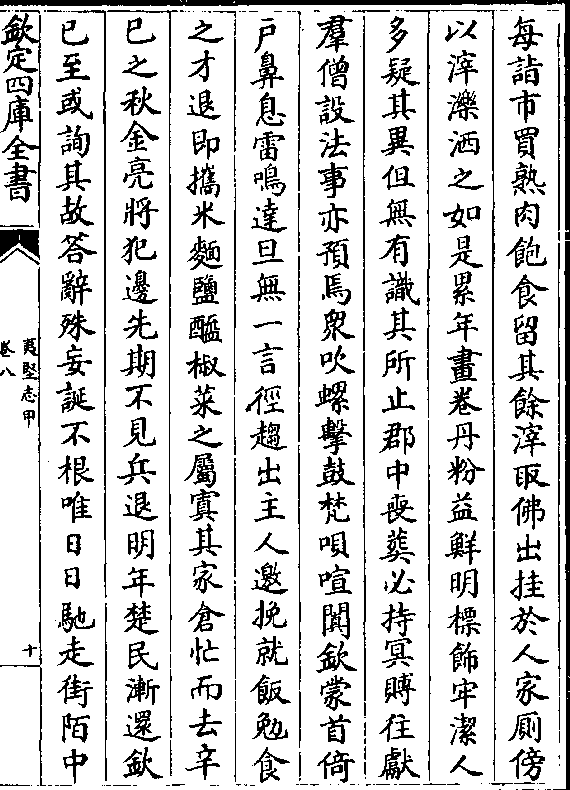 每詣市買熟肉飽食留其餘滓取佛出挂於人家厠傍
以滓濼洒之如是累年畫卷丹粉益鮮明標飾牢潔人
多疑其異但無有識其所止郡中喪葬必持冥賻往獻
羣僧設法事亦預焉衆吹螺擊鼓梵唄喧闐欽蒙首倚
戶鼻息雷鳴達旦無一言徑趨出主人邀挽就飯勉食
之才退即攜米麵鹽醯椒菜之屬寘其家倉忙而去辛
巳之秋金亮將犯邊先期不見兵退明年楚民漸還欽
已至或詢其故答辭殊妄誕不根唯日日馳走街陌中
欽定四庫全書
夷堅志甲
卷八
十